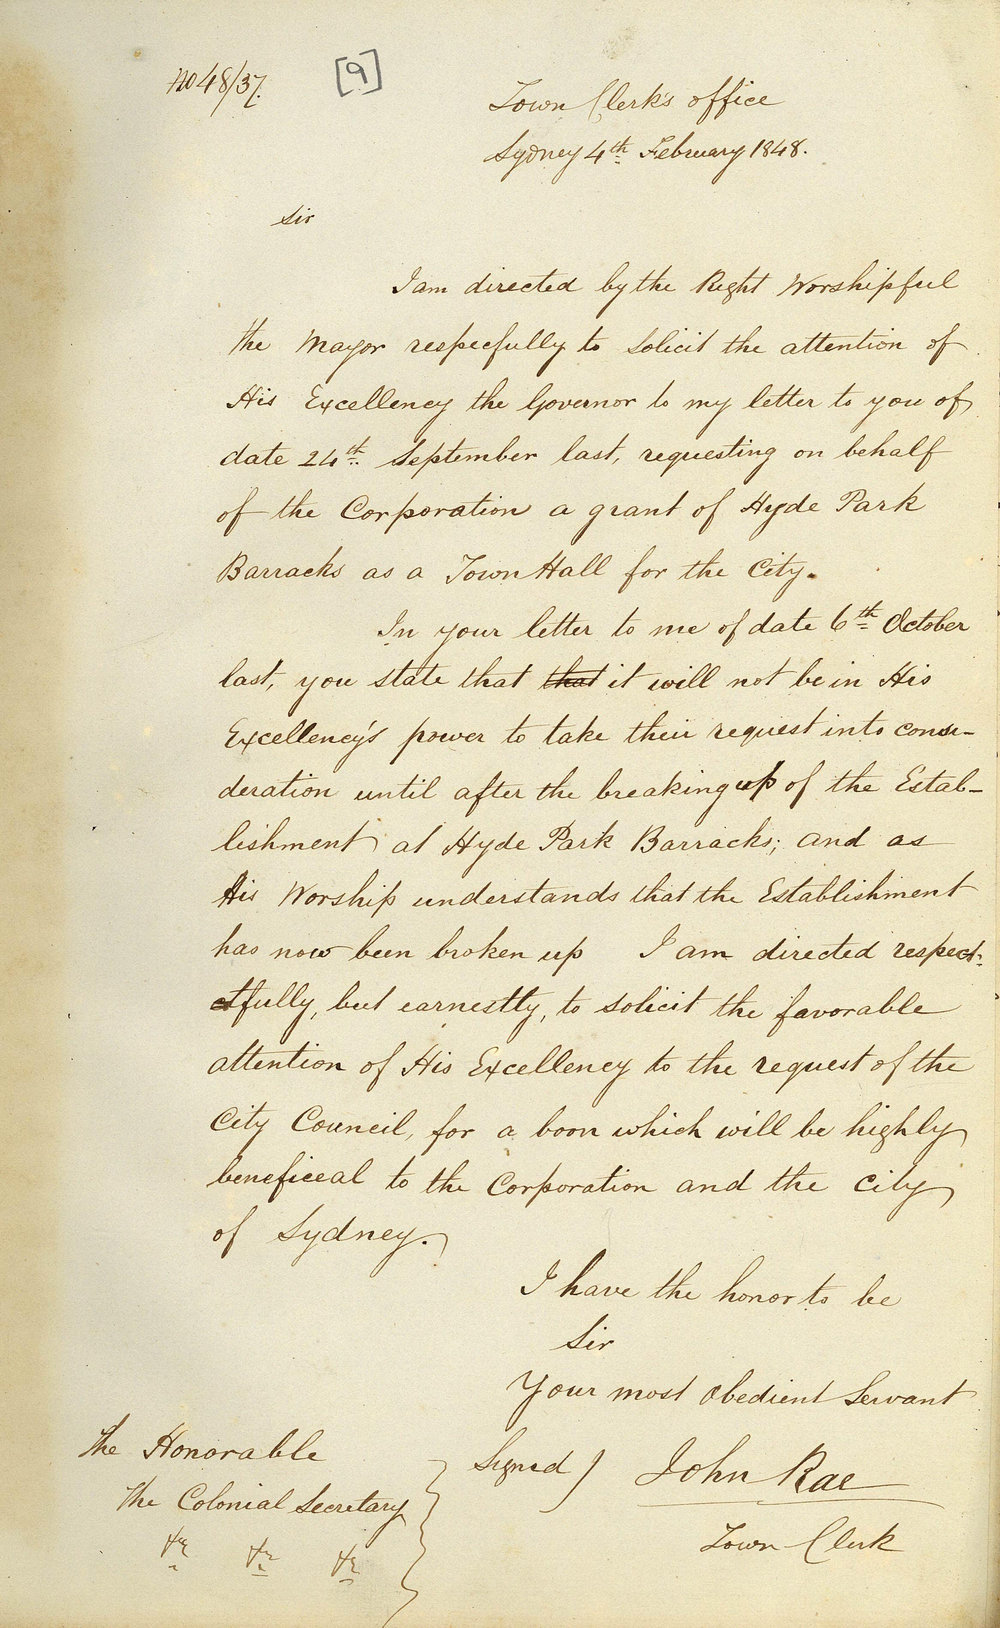 No 48/37.
[9]
Town Clerk's office
Sydney 4th February 1848.
Sir
I am directed by the Right Worshipful
the Mayor respecfully to solicit the attention of
His Excellency the Governor to my letter to you of
date 24th September last, requesting on behalf
of the Corporation a grant of Hyde Park
Barracks as a Town Hall for the City.
In your letter to me of date 6th October
last, you state that that it will not be in His
Excellency's power to take their request into consi-
deration until after the breaking up of the Estab-
lishment at Hyde Park Barracks; and as
His Worship understands that the Establishment
has now been broken up I am directed respect-
ctfully, but earnestly, to solicit the favorable
attention of His Excellency to the request of the
City Council, for a boon which will be highly
beneficeal to the Corporation and the City
of Sydney.
I have the honor to be
Sir
Your most obedient Servant
Signed) John Rae
Town Clerk
The Honorable
The Colonial Secretary
&c &c &c